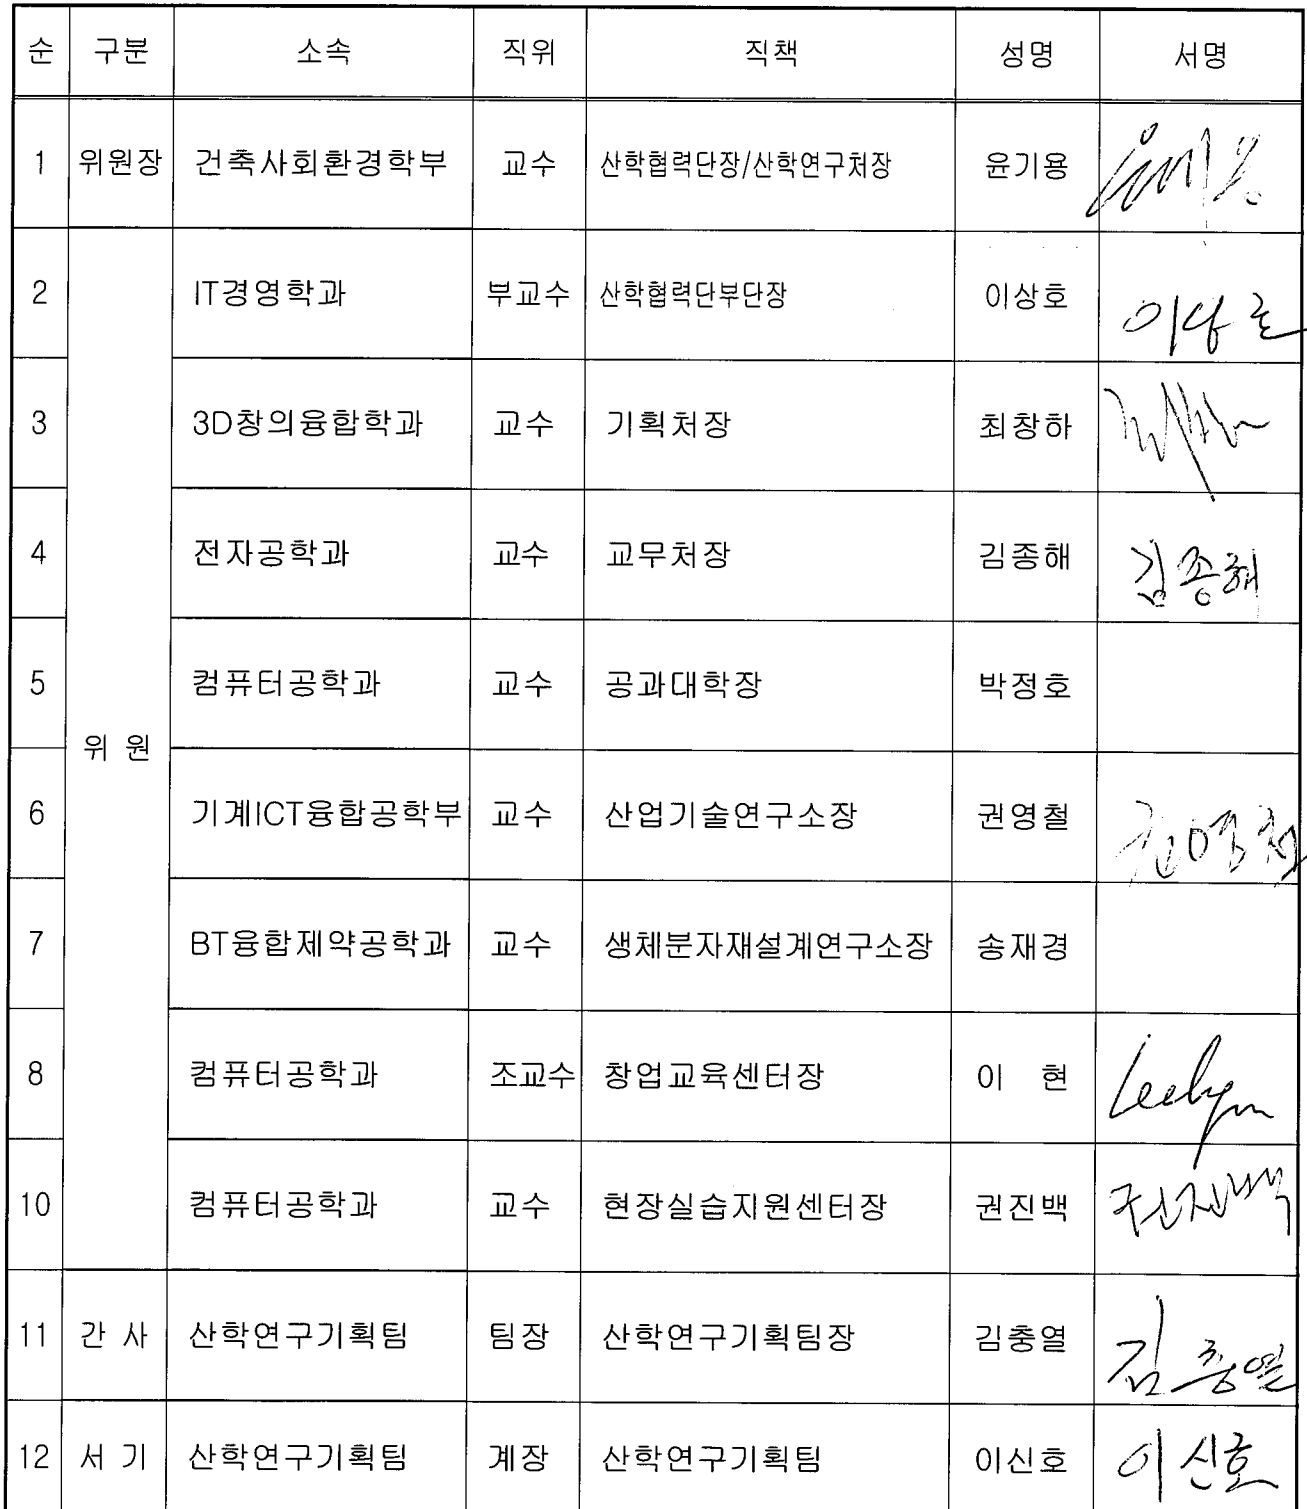 순 구분 소속 직위 직책 성명 서명
1 위원장 건축사회환경학부 교수 산학협력단장/산학연구처장 윤기용
2 IT경영학과 부교수 산학협력단부단장 이상호 이상호
3 3D창의융합학과 교수 기획처장 최창하
4 전자공학과 교수 교무처장 김종해 김종해
5 컴퓨터공학과 교수 공과대학장 박정호
위 원
6 기계ICT융합공학부 교수 산업기술연구소장 권영철 권영철
7 BT융합제약공학과 교수 생체분자재설계연구소장 송재경
8 컴퓨터공학과 조교수 창업교육센터장 이 현
10 컴퓨터공학과 교수 현장실습지원센터장 권진백 권진백
11 간 사 산학연구기획팀 팀장 산학연구기획팀장 김충열 김충열
12 서 기 산학연구기획팀 계장 산학연구기획팀 이신호 이신호